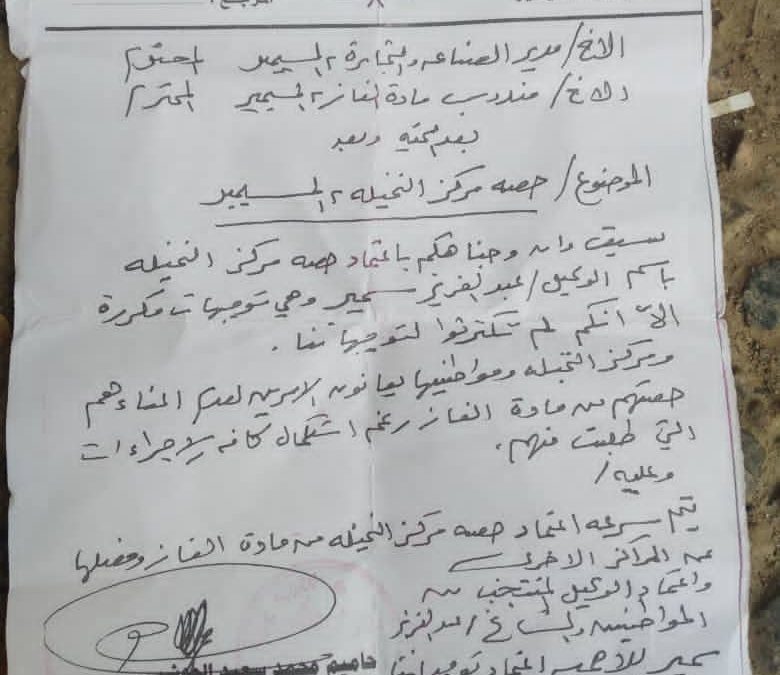 الاخ/ مدير الصناعه والتجارة م المسيمير المحترم
الاخ/ مندوب مادة الغاز م المسيمير المحترم
بعد التحية وبعد
الموضوع/ حصه مركز النخيله م المسيمير
سبق وان وجهناكم باعتماد حصه مركز النخيله
باسم الوكيل/ عبدالعزيز سمير وهي توجيهات مكررة
الا انكم لم تكترثوا لتوجيهاتنا.
ومركز النخيله ومواطنيها يعانون الامرين لعدم اعطاءهم
حصتهم من مادة الغاز رغم استكمال كافه الاجراءات
التي طلبت منهم.
وعليه/
يتم سرعه اعتماد حصه مركز النخيله من مادة الغاز وفصلها
عن المراكز الاخرى
واعتماد الوكيل المنتخب من
المواطنين والمشائخ/ عبدالعزيز
سمير للأهميه اعتماد توجيهاتنا
حاميم محمد سعيد